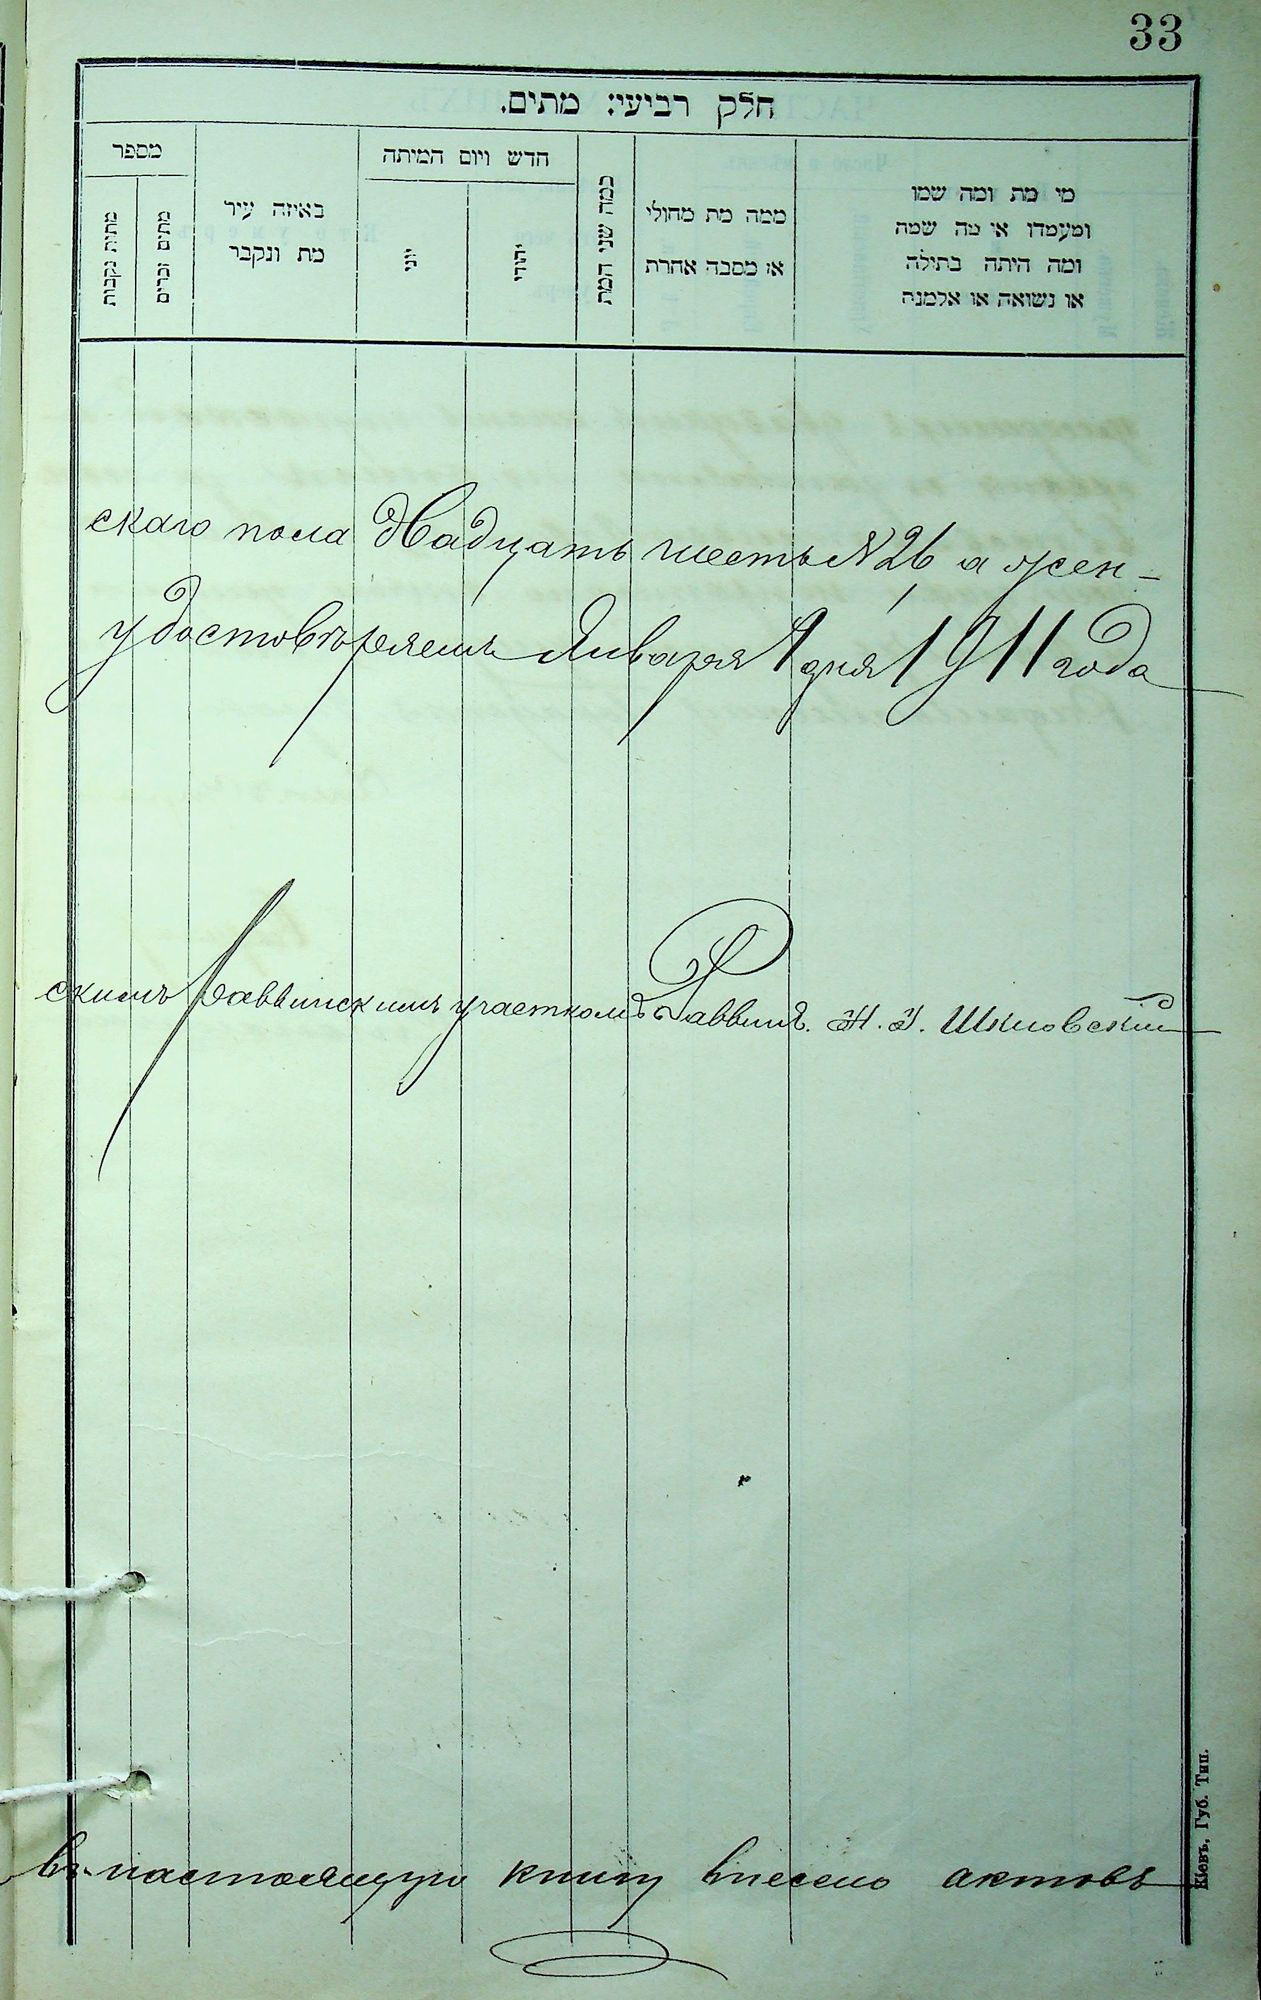 33
חלק רביעי: מתים.
מספר
מתות נקבות
מתים זכרים
באיזה עיר
מת ונקבר
חדש ויום המיתה
יוני
יהודי
כמה שני המת
ממה מת מחולי
או מסבה אחרת
מי מת ומה שמו
ומעמדו או מה שמה
ומה היתה בתולה
או נשואה או אלמנה
скаго пола Двадцать шесть № 26 а жен-
удостовѣряемъ Января 1 дня 1911 года
скимъ раввинскимъ участкомъ Раввинъ. Шкловскій
въ настоящую книгу внесено актовъ
Кіевъ, Губ. Тип.